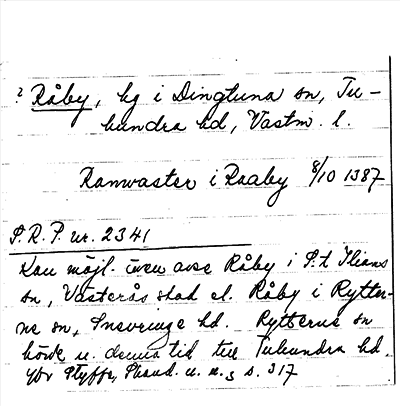 ? Råby, by i Dingtuna sn, Tu-
hundra hd, Västm. l.
Ramwaster i Raaby 8/10 1387
S.R.P. nr. 2341
Kan möjl. även avse Råby i S:t Ilians
sn, Västerås stad el. Råby i Rytter-
ne sn, Snevringe hd. Rytterne sn
hörde u. denna tid till Tuhundra hd.
Jbr Styffe, Skand. u. u.3 s. 317